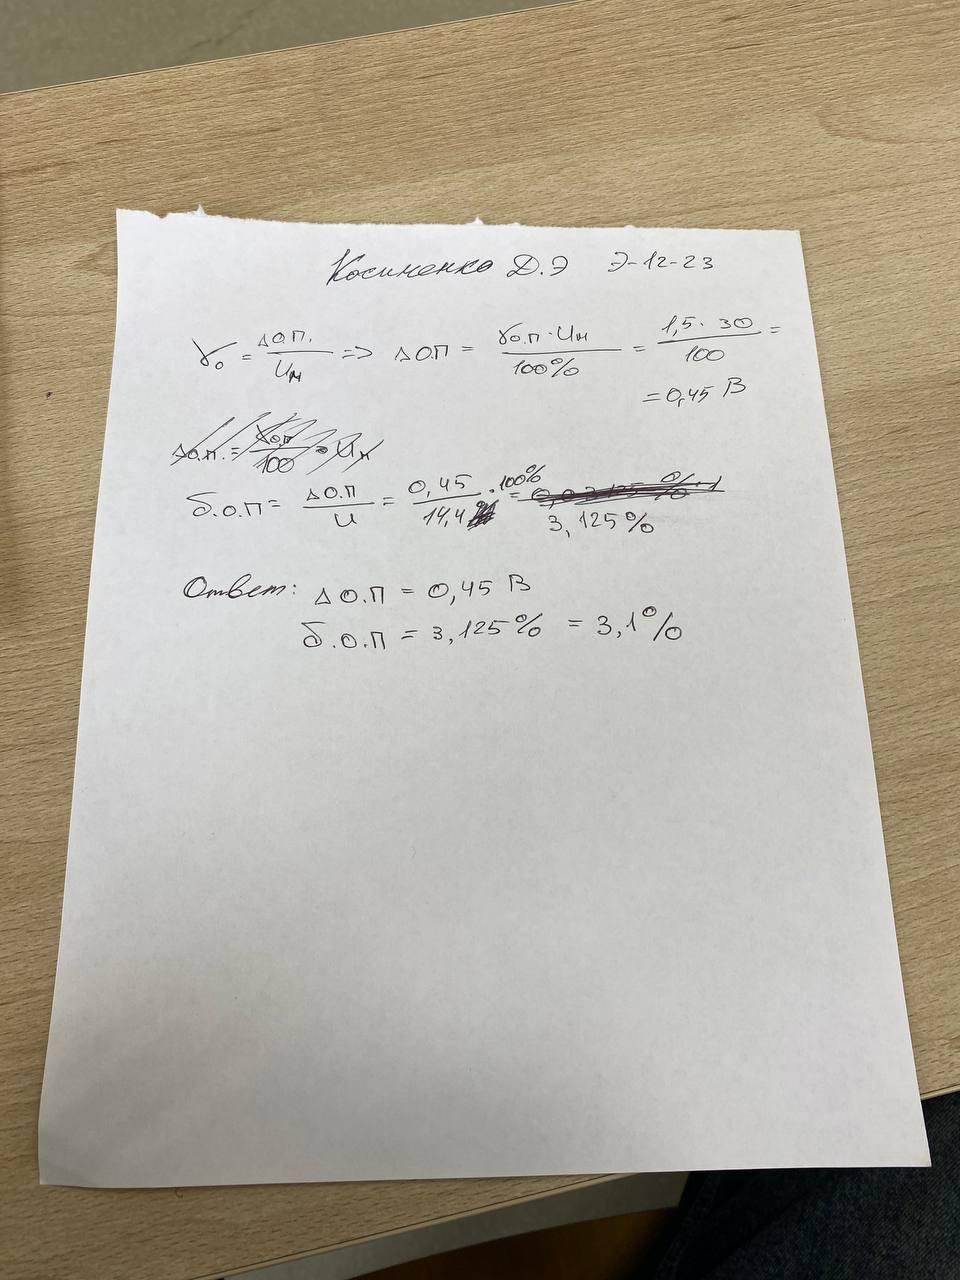 Косименко Д.Э Э-12-23
γ₀ = ΔО.П. / Uм => ΔО.П = γо.п · Uм / 100% = 1,5 · 30 / 100 =
= 0,45 В
Δо.п. = γо.п / 100 · Uм
δ.О.П = ΔО.П / U = 0,45 / 14,4 · 100% =
3,125%
Ответ: ΔО.П = 0,45 В
δ.О.П = 3,125% = 3,1%